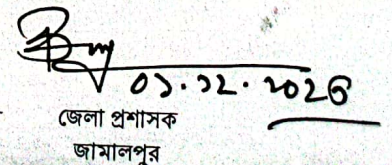 ০১.১২.২০২৫
জেলা প্রশাসক
জামালপুর